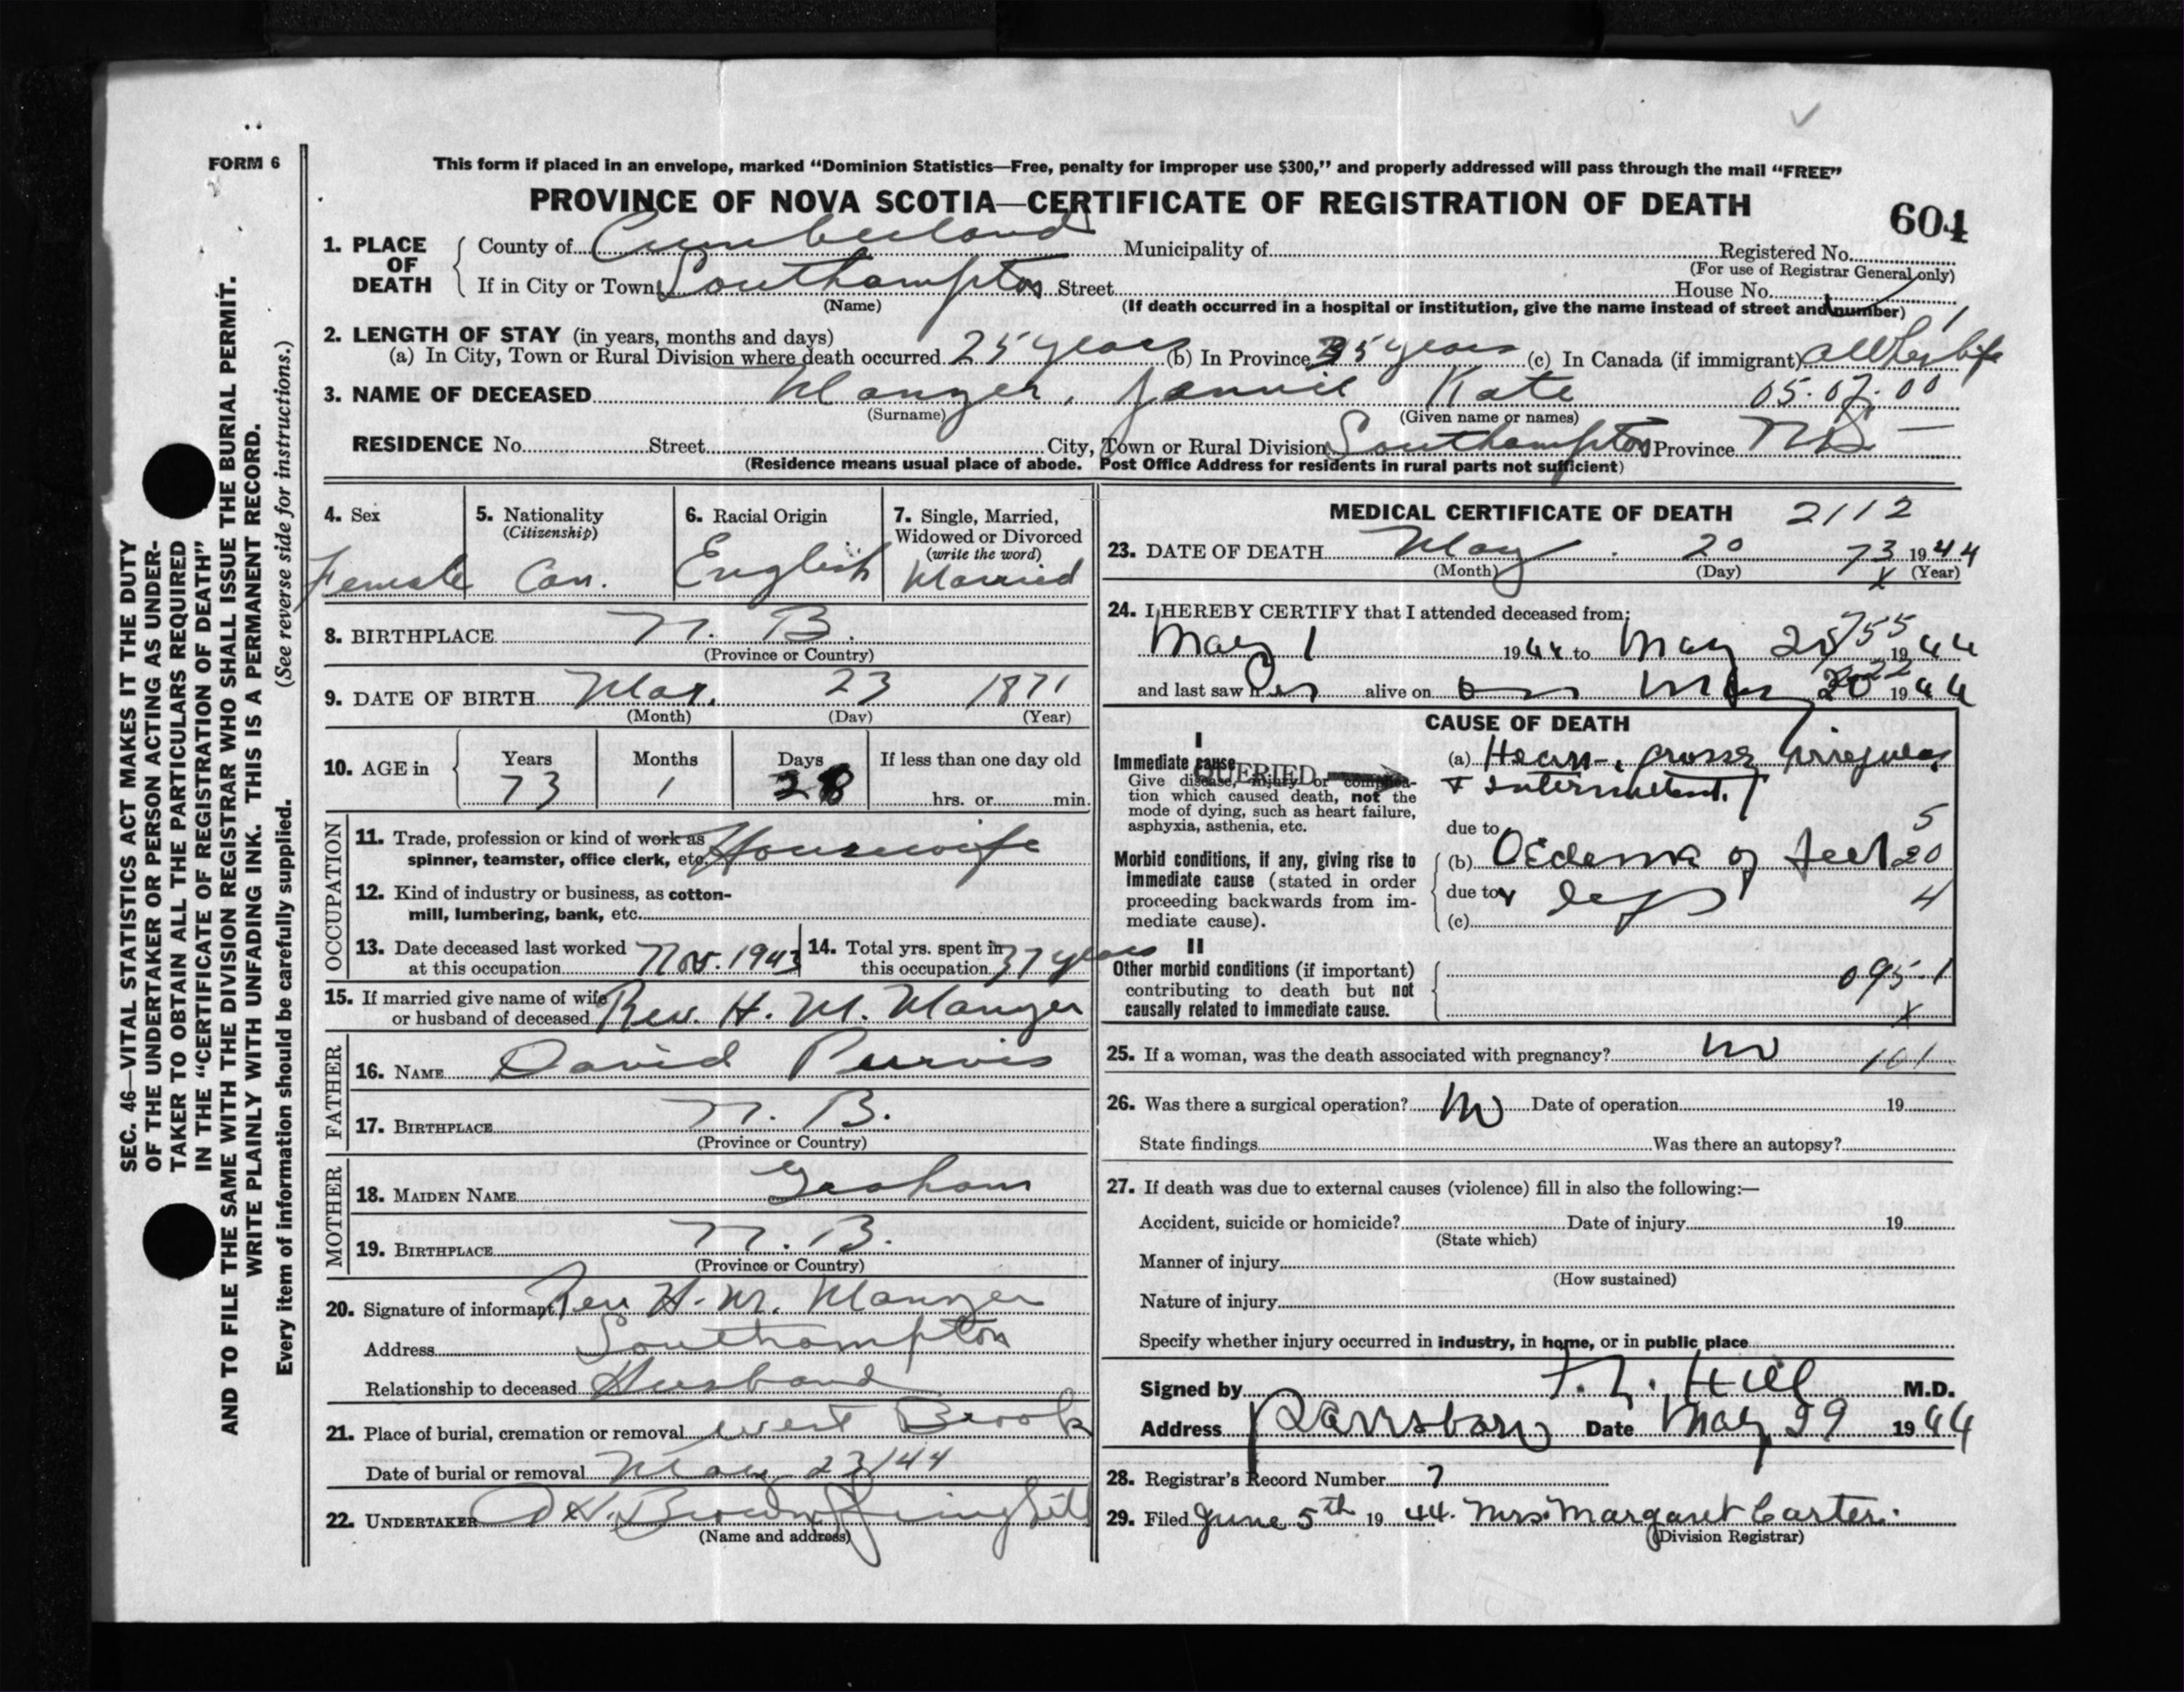 FORM 6
This form if placed in an envelope, marked "Dominion Statistics—Free, penalty for improper use $300," and properly addressed will pass through the mail "FREE"
PROVINCE OF NOVA SCOTIA—CERTIFICATE OF REGISTRATION OF DEATH
604
1. PLACE OF DEATH
County of Cumberland Municipality of Registered No.
(For use of Registrar General only)
If in City or Town Southampton Street House No.
(Name) (If death occurred in a hospital or institution, give the name instead of street and number)
2. LENGTH OF STAY (in years, months and days)
(a) In City, Town or Rural Division where death occurred 25 years (b) In Province 35 years (c) In Canada (if immigrant) all her life
3. NAME OF DECEASED Manzer, Jennie Kate 05.07.00
(Surname) (Given name or names)
RESIDENCE No. Street City, Town or Rural Division Southampton Province N.S.
(Residence means usual place of abode. Post Office Address for residents in rural parts not sufficient)
4. Sex Female
5. Nationality (Citizenship) Can.
6. Racial Origin English
7. Single, Married, Widowed or Divorced (write the word) Married
8. BIRTHPLACE N. B.
(Province or Country)
9. DATE OF BIRTH Mar. 23 1871
(Month) (Day) (Year)
10. AGE in Years 73 Months 1 Days 28 If less than one day old
hrs. or min.
OCCUPATION
11. Trade, profession or kind of work as
spinner, teamster, office clerk, etc. Housewife
12. Kind of industry or business, as cotton-
mill, lumbering, bank, etc.
13. Date deceased last worked
at this occupation Nov. 1943
14. Total yrs. spent in
this occupation 37 years
15. If married give name of wife
or husband of deceased Rev. H. M. Manzer
FATHER
16. NAME David Purvis
17. BIRTHPLACE N. B.
(Province or Country)
MOTHER
18. MAIDEN NAME Graham
19. BIRTHPLACE N. B.
(Province or Country)
20. Signature of informant Rev H. M. Manzer
Address Southampton
Relationship to deceased Husband
21. Place of burial, cremation or removal West Brook
Date of burial or removal May 23/44
22. UNDERTAKER Brown Springhill
(Name and address)
MEDICAL CERTIFICATE OF DEATH 2112
23. DATE OF DEATH May 20 73 1944
(Month) (Day) x (Year)
24. I HEREBY CERTIFY that I attended deceased from:
May 1 1944 to May 20 1944
755
and last saw her alive on May 20 1944
CAUSE OF DEATH
I
Immediate cause
QUERIED
Give disease, injury or complica-
tion which caused death, not the
mode of dying, such as heart failure,
asphyxia, asthenia, etc.
(a) Heart, grossly irregular
& Intermittent.
due to 5
Morbid conditions, if any, giving rise to
immediate cause (stated in order
proceeding backwards from im-
mediate cause).
(b) Oedema of feet 20
due to & legs 4
(c)
II
Other morbid conditions (if important)
contributing to death but not
causally related to immediate cause.
095-1
x
25. If a woman, was the death associated with pregnancy? no 101
26. Was there a surgical operation? no Date of operation 19
State findings Was there an autopsy?
27. If death was due to external causes (violence) fill in also the following:—
Accident, suicide or homicide? Date of injury 19
(State which)
Manner of injury
(How sustained)
Nature of injury
Specify whether injury occurred in industry, in home, or in public place
Signed by Hill M.D.
Address Parrsboro Date May 29 1944
28. Registrar's Record Number 7
29. Filed June 5th 1944. Mrs. Margaret Carter.
(Division Registrar)
SEC. 46—VITAL STATISTICS ACT MAKES IT THE DUTY
OF THE UNDERTAKER OR PERSON ACTING AS UNDER-
TAKER TO OBTAIN ALL THE PARTICULARS REQUIRED
IN THE "CERTIFICATE OF REGISTRATION OF DEATH"
AND TO FILE THE SAME WITH THE DIVISION REGISTRAR WHO SHALL ISSUE THE BURIAL PERMIT.
WRITE PLAINLY WITH UNFADING INK. THIS IS A PERMANENT RECORD.
Every item of information should be carefully supplied. (See reverse side for instructions.)